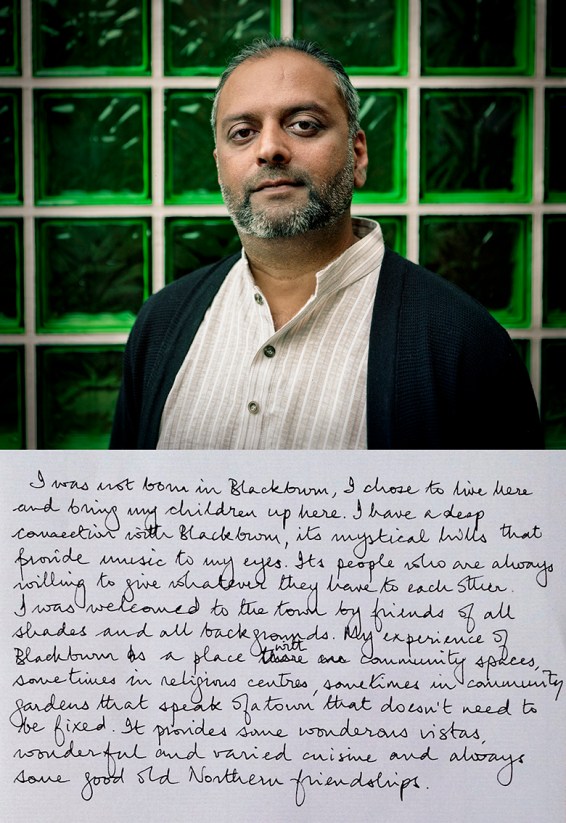 I was not born in Blackburn, I chose to live here
and bring my children up here. I have a deep
connection with Blackburn, its mystical hills that
provide music to my eyes. Its people who are always
willing to give whatever they have to each other.
I was welcomed to the town by friends of all
shades and all backgrounds. My experience of
Blackburn is a place with community spaces,
sometimes in religious centres, sometimes in community
gardens that speak of a town that doesn't need to
be fixed. It provides some wonderous vistas,
wonderful and varied cuisine and always
some good old Northern friendships.